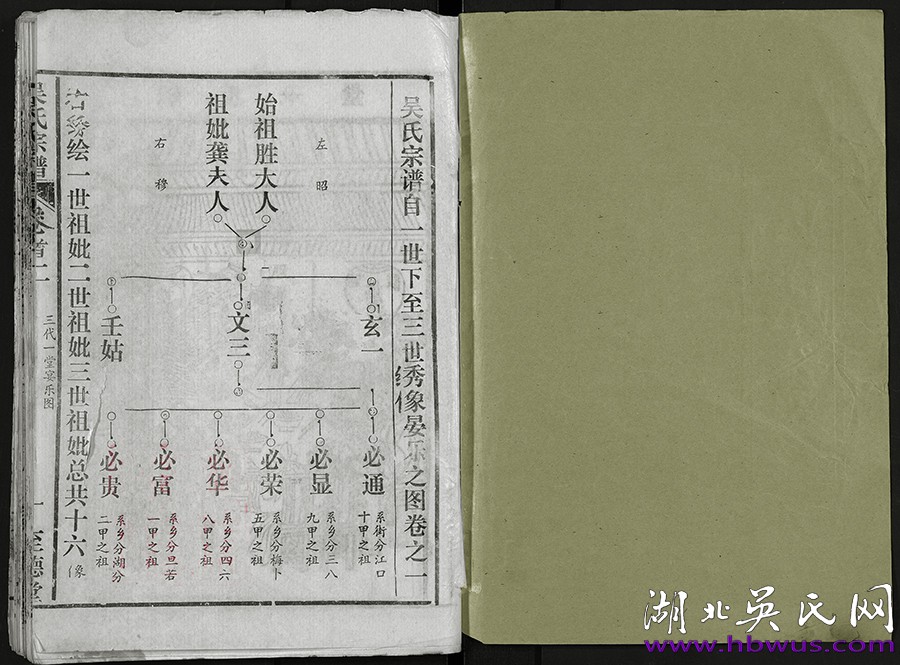 吴氏宗谱自一世下至三世绣像晏乐之图卷之一
左昭
始祖胜大人
祖妣龚夫人
右穆
玄一
文三
壬姑
必通
系街分江口
十甲之祖
必显
系乡分三八
九甲之祖
必荣
系乡分梅卜
五甲之祖
必华
系乡分四六
八甲之祖
必富
系乡分旦若
一甲之祖
必贵
系乡分湖分
二甲之祖
绘一世祖妣二世祖妣三世祖妣总共十六像
吴氏宗谱
卷首二
三代一堂宴乐图
一
至德堂
湖北吴氏网
www.hbwus.com